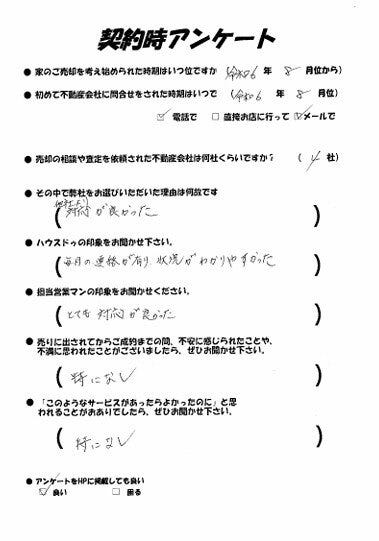 契約時アンケート
● 家のご売却を考え始められた時期はいつ位ですか (令和6 年 8 月位から)
● 初めて不動産会社に問合せをされた時期はいつで (令和6 年 8 月位)
☑ 電話で □ 直接お店に行って ☑メールで
● 売却の相談や査定を依頼された不動産会社は何社くらいですか? ( 4 社)
● その中で弊社をお選びいただいた理由は何故です
他社より
( 対応が良かった )
● ハウスドゥの印象をお聞かせ下さい。
( 毎月の連絡が有り 状況がわかりやすかった )
● 担当営業マンの印象をお聞かせください。
( とても 対応が良かった )
● 売りに出されてからご成約までの間、不安に感じられたことや、
不満に思われたことがございましたら、ぜひお聞かせ下さい。
( 特になし )
● 「このようなサービスがあったらよかったのに」と思
われることがおありでしたら、ぜひお聞かせ下さい。
( 特になし )
● アンケートをHPに掲載しても良い
☑ 良い □ 困る